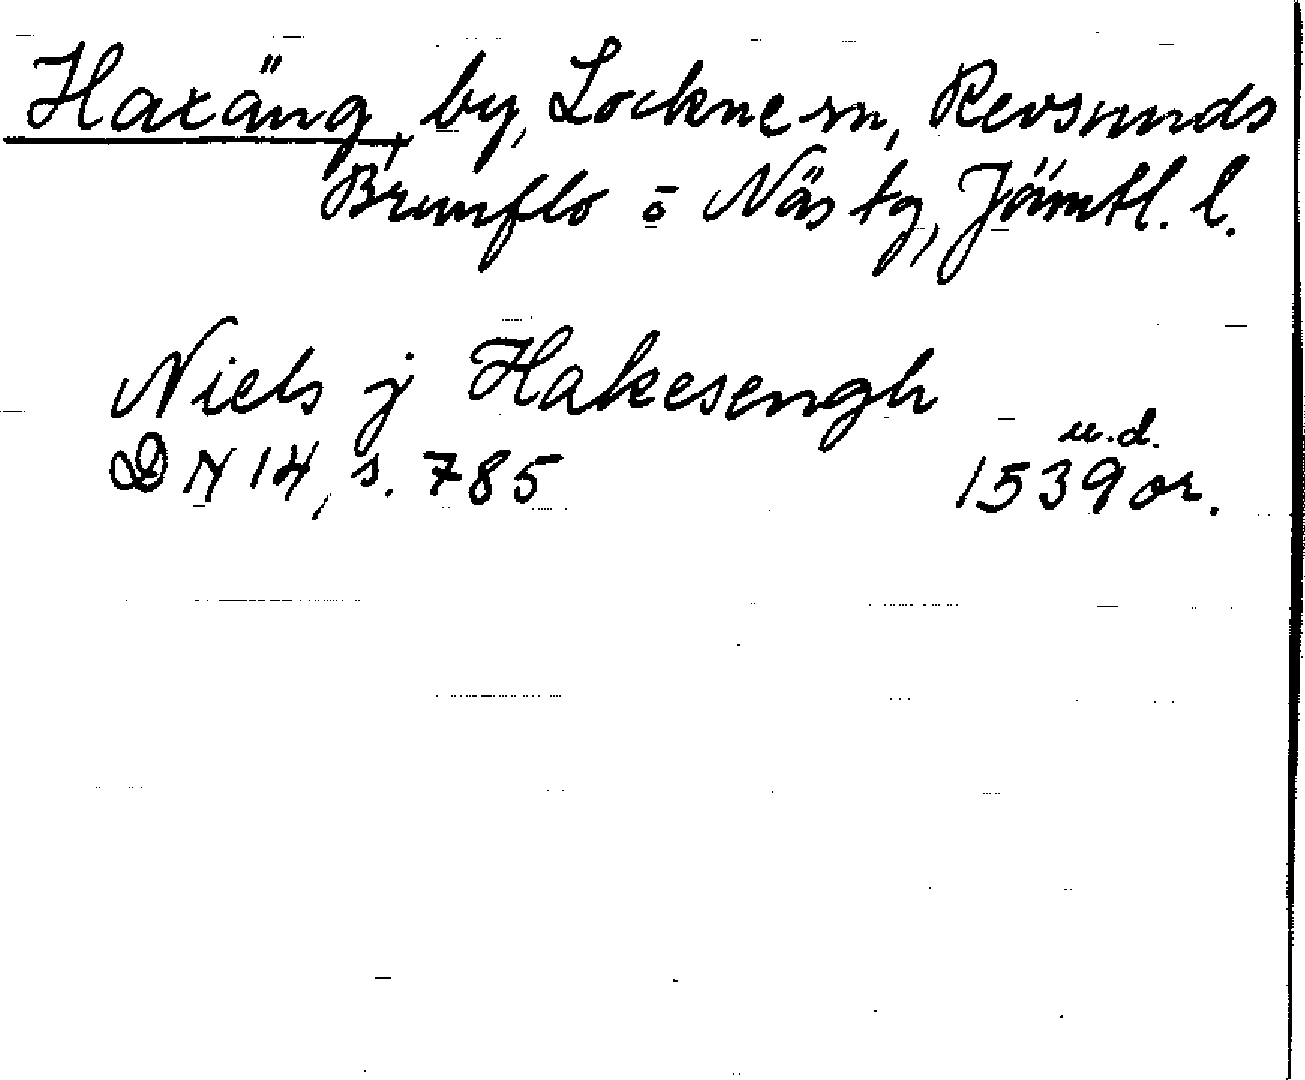 Haxäng, by, Lockne sn, Revsunds
Brunflo o Näs tg, Jämtl. l.
Niels j Hakesengh
u.d.
DN 14, s. 785 1539 or.